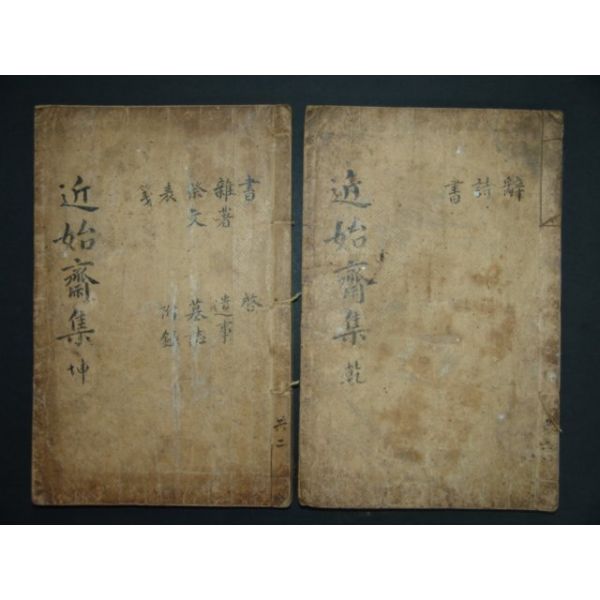 辭
詩
書
近始齋集 乾
共二
書 啓
雜著 遺事
祭文 墓誌
表 附錄
箋
近始齋集 坤